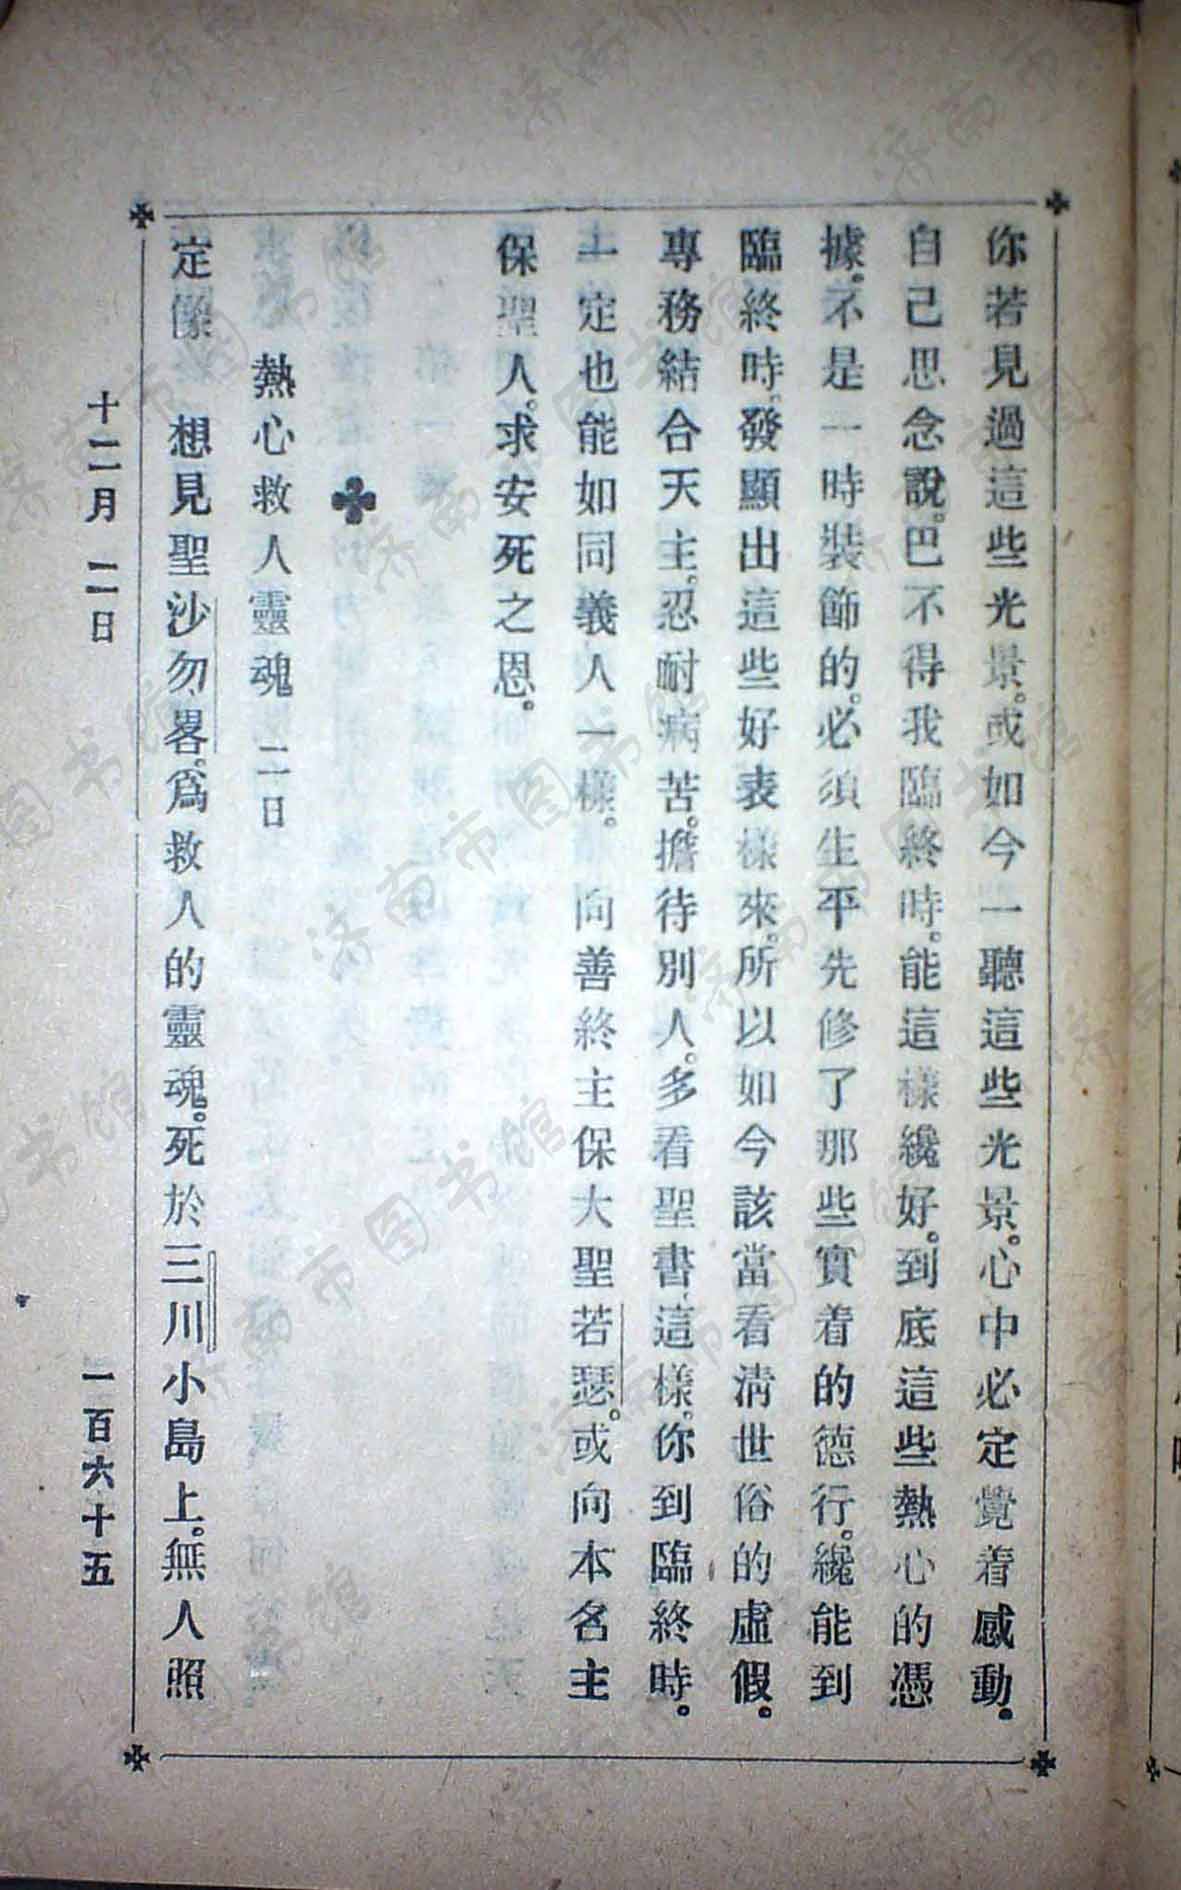 你若見過這些光景。或如今一聽這些光景。心中必定覺着感動。
自己思念說。巴不得我臨終時。能這樣纔好。到底這些熱心的憑
據。不是一時裝飾的。必須生平先修了那些實着的德行。纔能到
臨終時。發顯出這些好表樣來。所以如今該當看淸世俗的虛假。
專務結合天主。忍耐病苦。擔待別人。多看聖書。這樣。你到臨終時。
一定也能如同義人一樣。 向善終主保大聖若瑟。或向本名主
保聖人。求安死之恩。
熱心救人靈魂 二日
定像 想見聖沙勿畧。爲救人的靈魂。死於三川小島上。無人照
十二月 二日 一百六十五
济南市图书馆